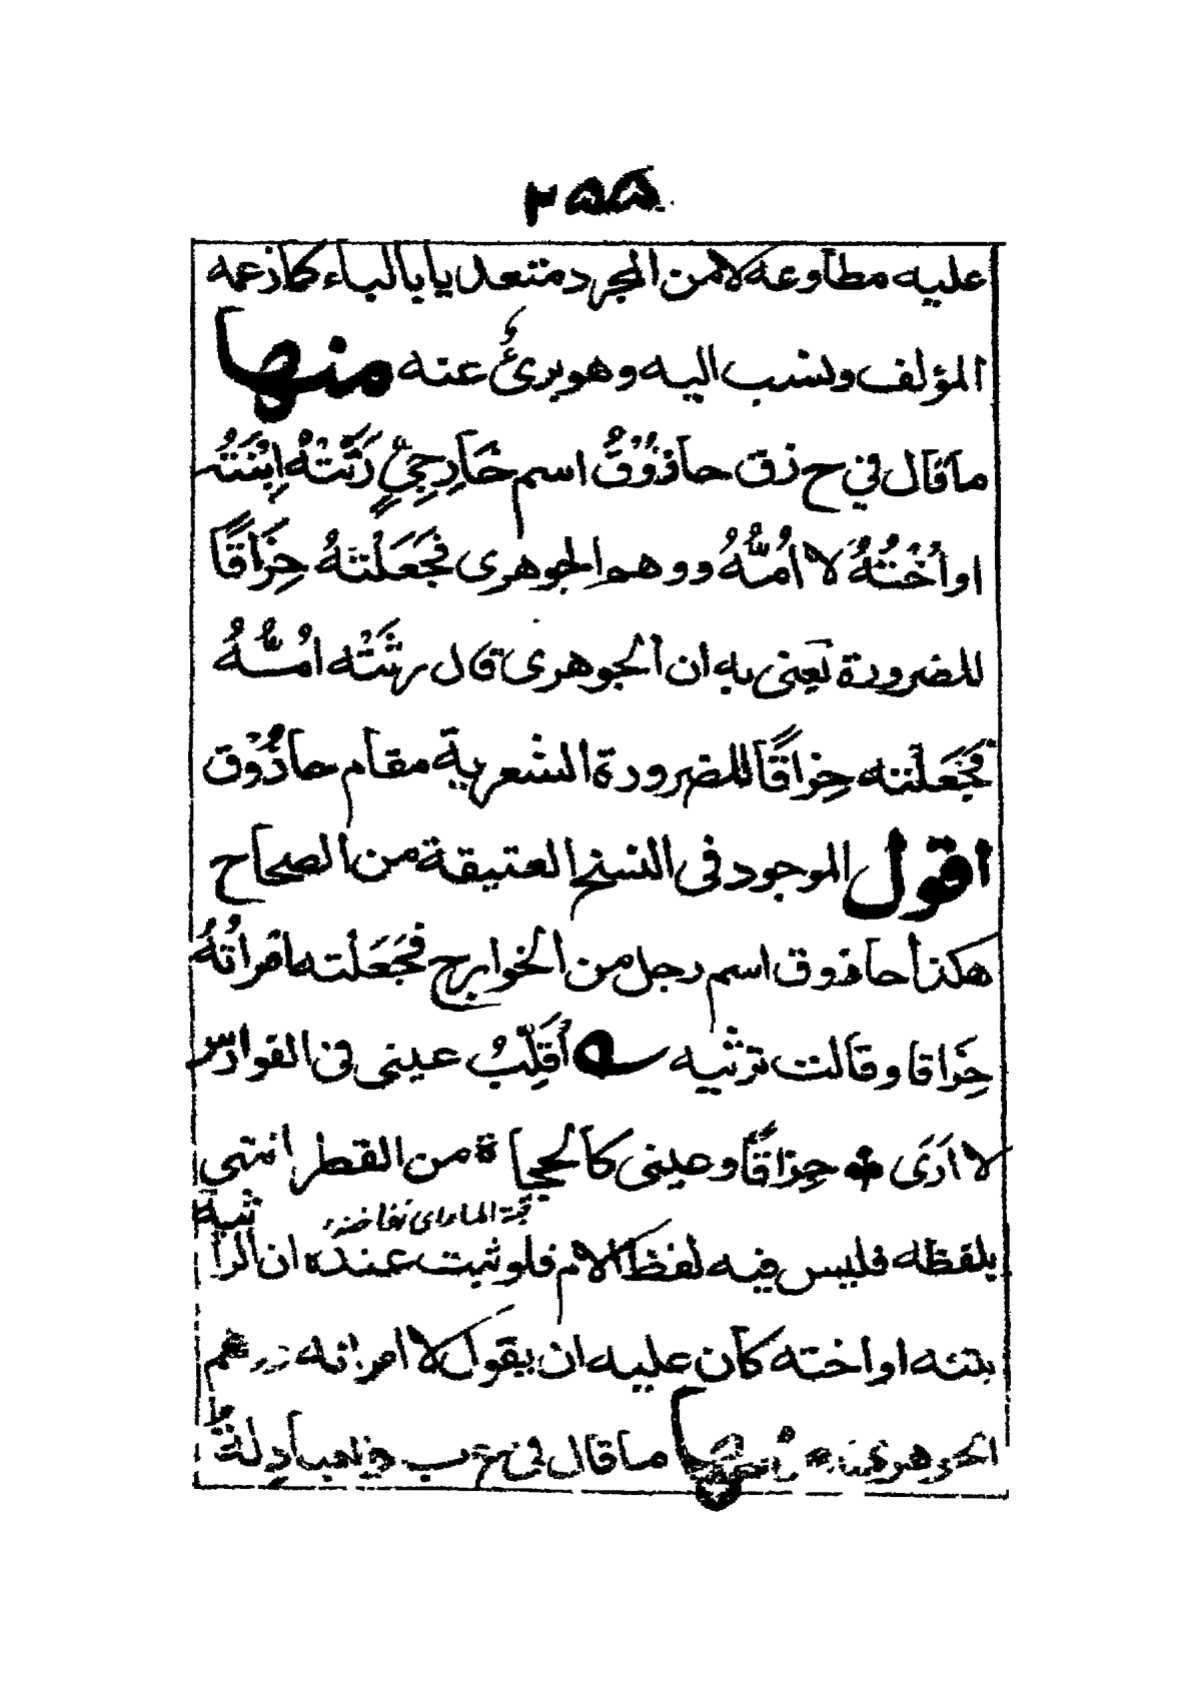 ٢٥٥
عليه مطاوعه لامن المجرد متعديا بالباء كمازعمه
المؤلف ونسب اليه وهو برئُ عنه منها
ماقال في ح زق حازُوْقُ اسم خَارِجِيٍّ رَثَتْهُ اِبْنَتُه
اواُخْتُهُ لا اُمُّهُ ووهم الجوهرى فَجَعَلَتهُ حِزَاقًا
للضرورة يَعنِى به ان الجوهرى قال رثَتْه اُمُّهُ
فجَعَلَته حِزاقًا للضرورة الشعرية مقام حازُوْق
اقول الموجود فى النسخ العتيقة من الصحاح
هكذا حازوق اسم رجل من الخوارج فجَعَلته امراتُهُ
حِزَاقا وقالت ترثيه ؎ أُقَلِّبُ عينى فى الفوارس
لا اَرَى حِزاقًا وعينى كالحجاة من القطر انتهى
بلفظه فليس فيه لفظ الام فلو ثبت عنده ان الراثية
بنته اواخته كان عليه ان يقول لا امراته
الجوهرى ماقال فى